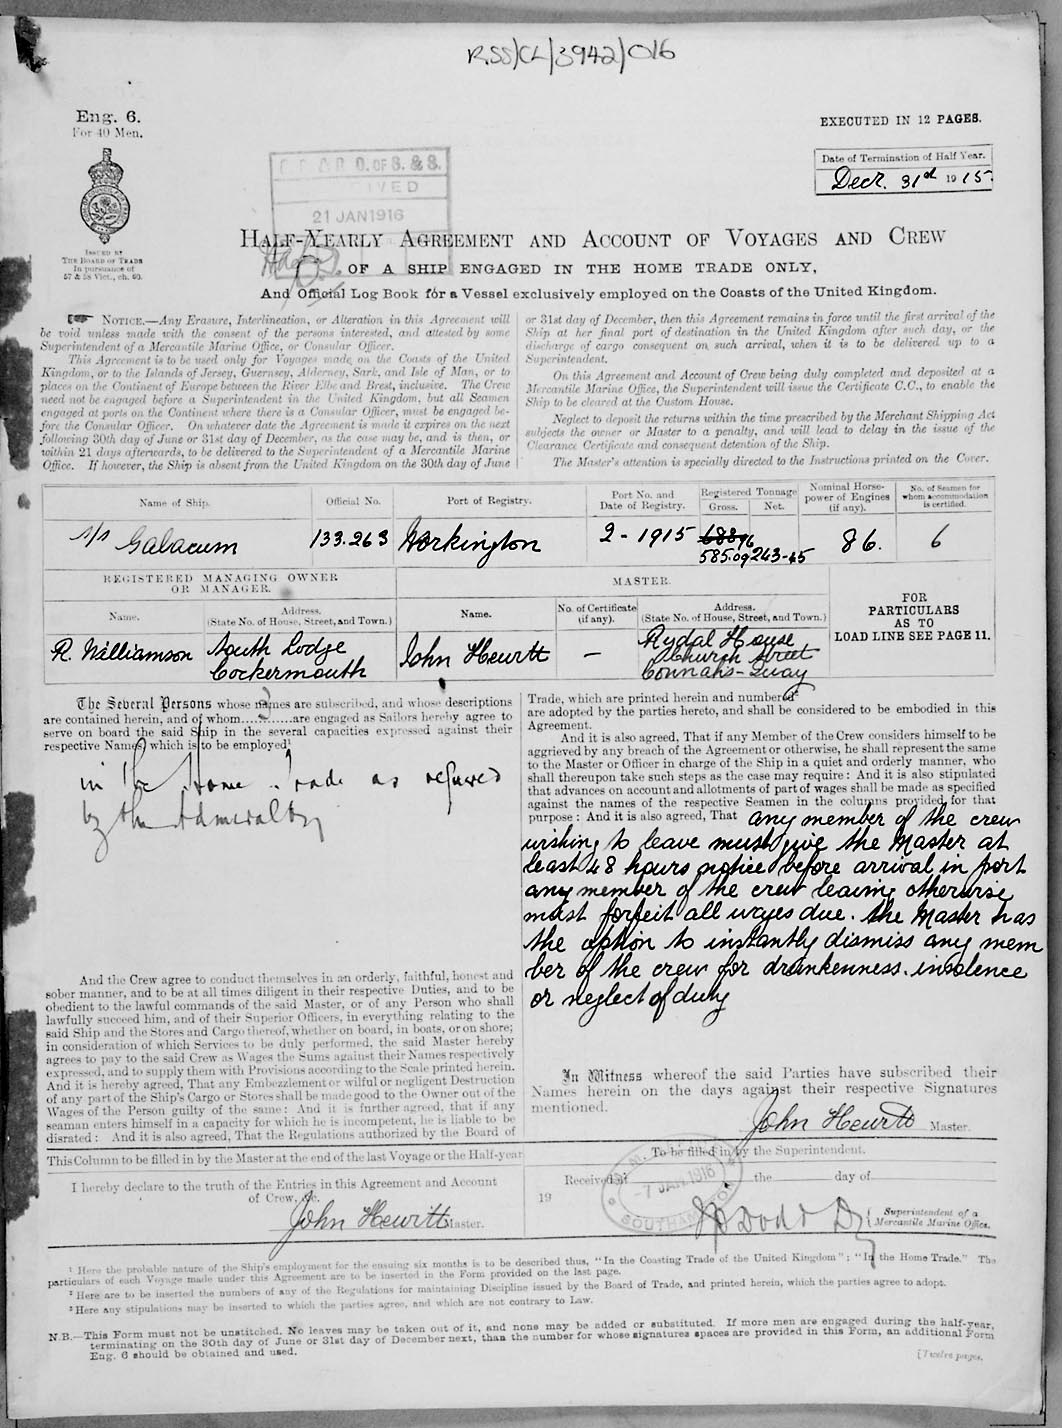 RSS/CL/3942/016
Eng. 6.
For 40 Men.
EXECUTED IN 12 PAGES.
Date of Termination of Half Year.
Decr. 31st 1915.
ISSUED BY
THE BOARD OF TRADE
In pursuance of
57 & 58 Vict., ch. 60.
O. OF S. & S.
21 JAN 1916
HALF-YEARLY AGREEMENT AND ACCOUNT OF VOYAGES AND CREW
OF A SHIP ENGAGED IN THE HOME TRADE ONLY,
And Official Log Book for a Vessel exclusively employed on the Coasts of the United Kingdom.
NOTICE.—Any Erasure, Interlineation, or Alteration in this Agreement will
be void unless made with the consent of the persons interested, and attested by some
Superintendent of a Mercantile Marine Office, or Consular Officer.
This Agreement is to be used only for Voyages made on the Coasts of the United
Kingdom, or to the Islands of Jersey, Guernsey, Alderney, Sark, and Isle of Man, or to
places on the Continent of Europe between the River Elbe and Brest, inclusive. The Crew
need not be engaged before a Superintendent in the United Kingdom, but all Seamen
engaged at ports on the Continent where there is a Consular Officer, must be engaged be-
fore the Consular Officer. On whatever date the Agreement is made it expires on the next
following 30th day of June or 31st day of December, as the case may be, and is then, or
within 21 days afterwards, to be delivered to the Superintendent of a Mercantile Marine
Office. If however, the Ship is absent from the United Kingdom on the 30th day of June
or 31st day of December, then this Agreement remains in force until the first arrival of the
Ship at her final port of destination in the United Kingdom after such day, or the
discharge of cargo consequent on such arrival, when it is to be delivered up to a
Superintendent.
On this Agreement and Account of Crew being duly completed and deposited at a
Mercantile Marine Office, the Superintendent will issue the Certificate C.C., to enable the
Ship to be cleared at the Custom House.
Neglect to deposit the returns within the time prescribed by the Merchant Shipping Act
subjects the owner or Master to a penalty, and will lead to delay in the issue of the
Clearance Certificate and consequent detention of the Ship.
The Master's attention is specially directed to the Instructions printed on the Cover.
Name of Ship.
Official No.
Port of Registry.
Port No. and
Date of Registry.
Registered Tonnage
Gross. Net.
Nominal Horse-
power of Engines
(if any).
No. of Seamen for
whom accommodation
is certified.
s/s Galacum
133.263
Workington
2 - 1915
585.09 263-45
86.
6
REGISTERED MANAGING OWNER
OR MANAGER.
MASTER.
Name.
Address.
(State No. of House, Street, and Town.)
Name.
No. of Certificate
(if any).
Address.
(State No. of House, Street, and Town.)
FOR
PARTICULARS
AS TO
LOAD LINE SEE PAGE 11.
R. Williamson
South Lodge
Cockermouth
John Hewitt
—
Rydal House
Church Street
Connahs-Quay
The Several Persons whose names are subscribed, and whose descriptions
are contained herein, and of whom..........are engaged as Sailors hereby agree to
serve on board the said Ship in the several capacities expressed against their
respective Names which is to be employed¹
in the Home Trade as required
by the Admiralty
And the Crew agree to conduct themselves in an orderly, faithful, honest and
sober manner, and to be at all times diligent in their respective Duties, and to be
obedient to the lawful commands of the said Master, or of any Person who shall
lawfully succeed him, and of their Superior Officers, in everything relating to the
said Ship and the Stores and Cargo thereof, whether on board, in boats, or on shore;
in consideration of which Services to be duly performed, the said Master hereby
agrees to pay to the said Crew as Wages the Sums against their Names respectively
expressed, and to supply them with Provisions according to the Scale printed herein.
And it is hereby agreed, That any Embezzlement or wilful or negligent Destruction
of any part of the Ship's Cargo or Stores shall be made good to the Owner out of the
Wages of the Person guilty of the same: And it is further agreed, that if any
seaman enters himself in a capacity for which he is incompetent, he is liable to be
disrated: And it is also agreed, That the Regulations authorized by the Board of
Trade, which are printed herein and numbered²
are adopted by the parties hereto, and shall be considered to be embodied in this
Agreement.
And it is also agreed, That if any Member of the Crew considers himself to be
aggrieved by any breach of the Agreement or otherwise, he shall represent the same
to the Master or Officer in charge of the Ship in a quiet and orderly manner, who
shall thereupon take such steps as the case may require: And it is also stipulated
that advances on account and allotments of part of wages shall be made as specified
against the names of the respective Seamen in the columns provided for that
purpose: And it is also agreed, That any member of the crew
wishing to leave must give the Master at
least 48 hours notice before arrival in port
any member of the crew leaving otherwise
must forfeit all wages due. the Master has
the option to instantly dismiss any mem
ber of the crew for drunkenness. insolence
or neglect of duty
In Witness whereof the said Parties have subscribed their
Names herein on the days against their respective Signatures
mentioned.
John Hewitt Master.
This Column to be filled in by the Master at the end of the last Voyage or the Half-year
I hereby declare to the truth of the Entries in this Agreement and Account
of Crew, &c.
John Hewitt Master.
To be filled in by the Superintendent.
Received at the day of
19
-7 JAN 1916
SOUTHAMPTON
J P Dodd Dy
Superintendent of a
Mercantile Marine Office.
¹ Here the probable nature of the Ship's employment for the ensuing six months is to be described thus, "In the Coasting Trade of the United Kingdom"; "In the Home Trade." The
particulars of each Voyage made under this Agreement are to be inserted in the Form provided on the last page.
² Here are to be inserted the numbers of any of the Regulations for maintaining Discipline issued by the Board of Trade, and printed herein, which the parties agree to adopt.
³ Here any stipulations may be inserted to which the parties agree, and which are not contrary to Law.
N.B.—This Form must not be unstitched. No leaves may be taken out of it, and none may be added or substituted. If more men are engaged during the half-year,
terminating on the 30th day of June or 31st day of December next, than the number for whose signatures spaces are provided in this Form, an additional Form
Eng. 6 should be obtained and used.
[Twelve pages.